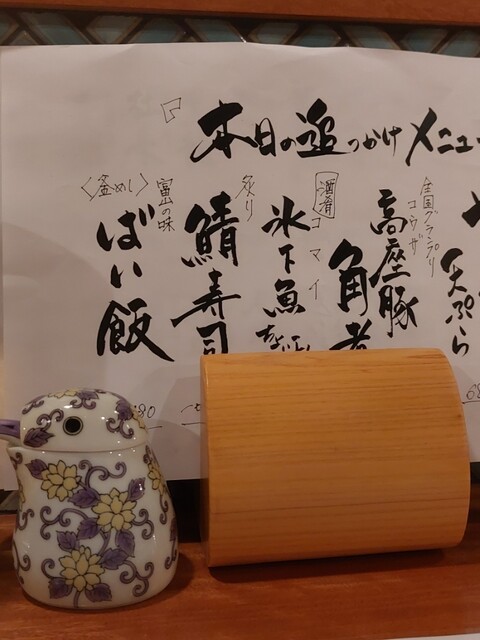 本日の追っかけメニュー
天ぷら
全国グランプリ
コウザ
高座豚
角煮
酒肴
コマイ
氷下魚
炙り
鯖寿司
富山の味
〈釜めし〉
ばい飯